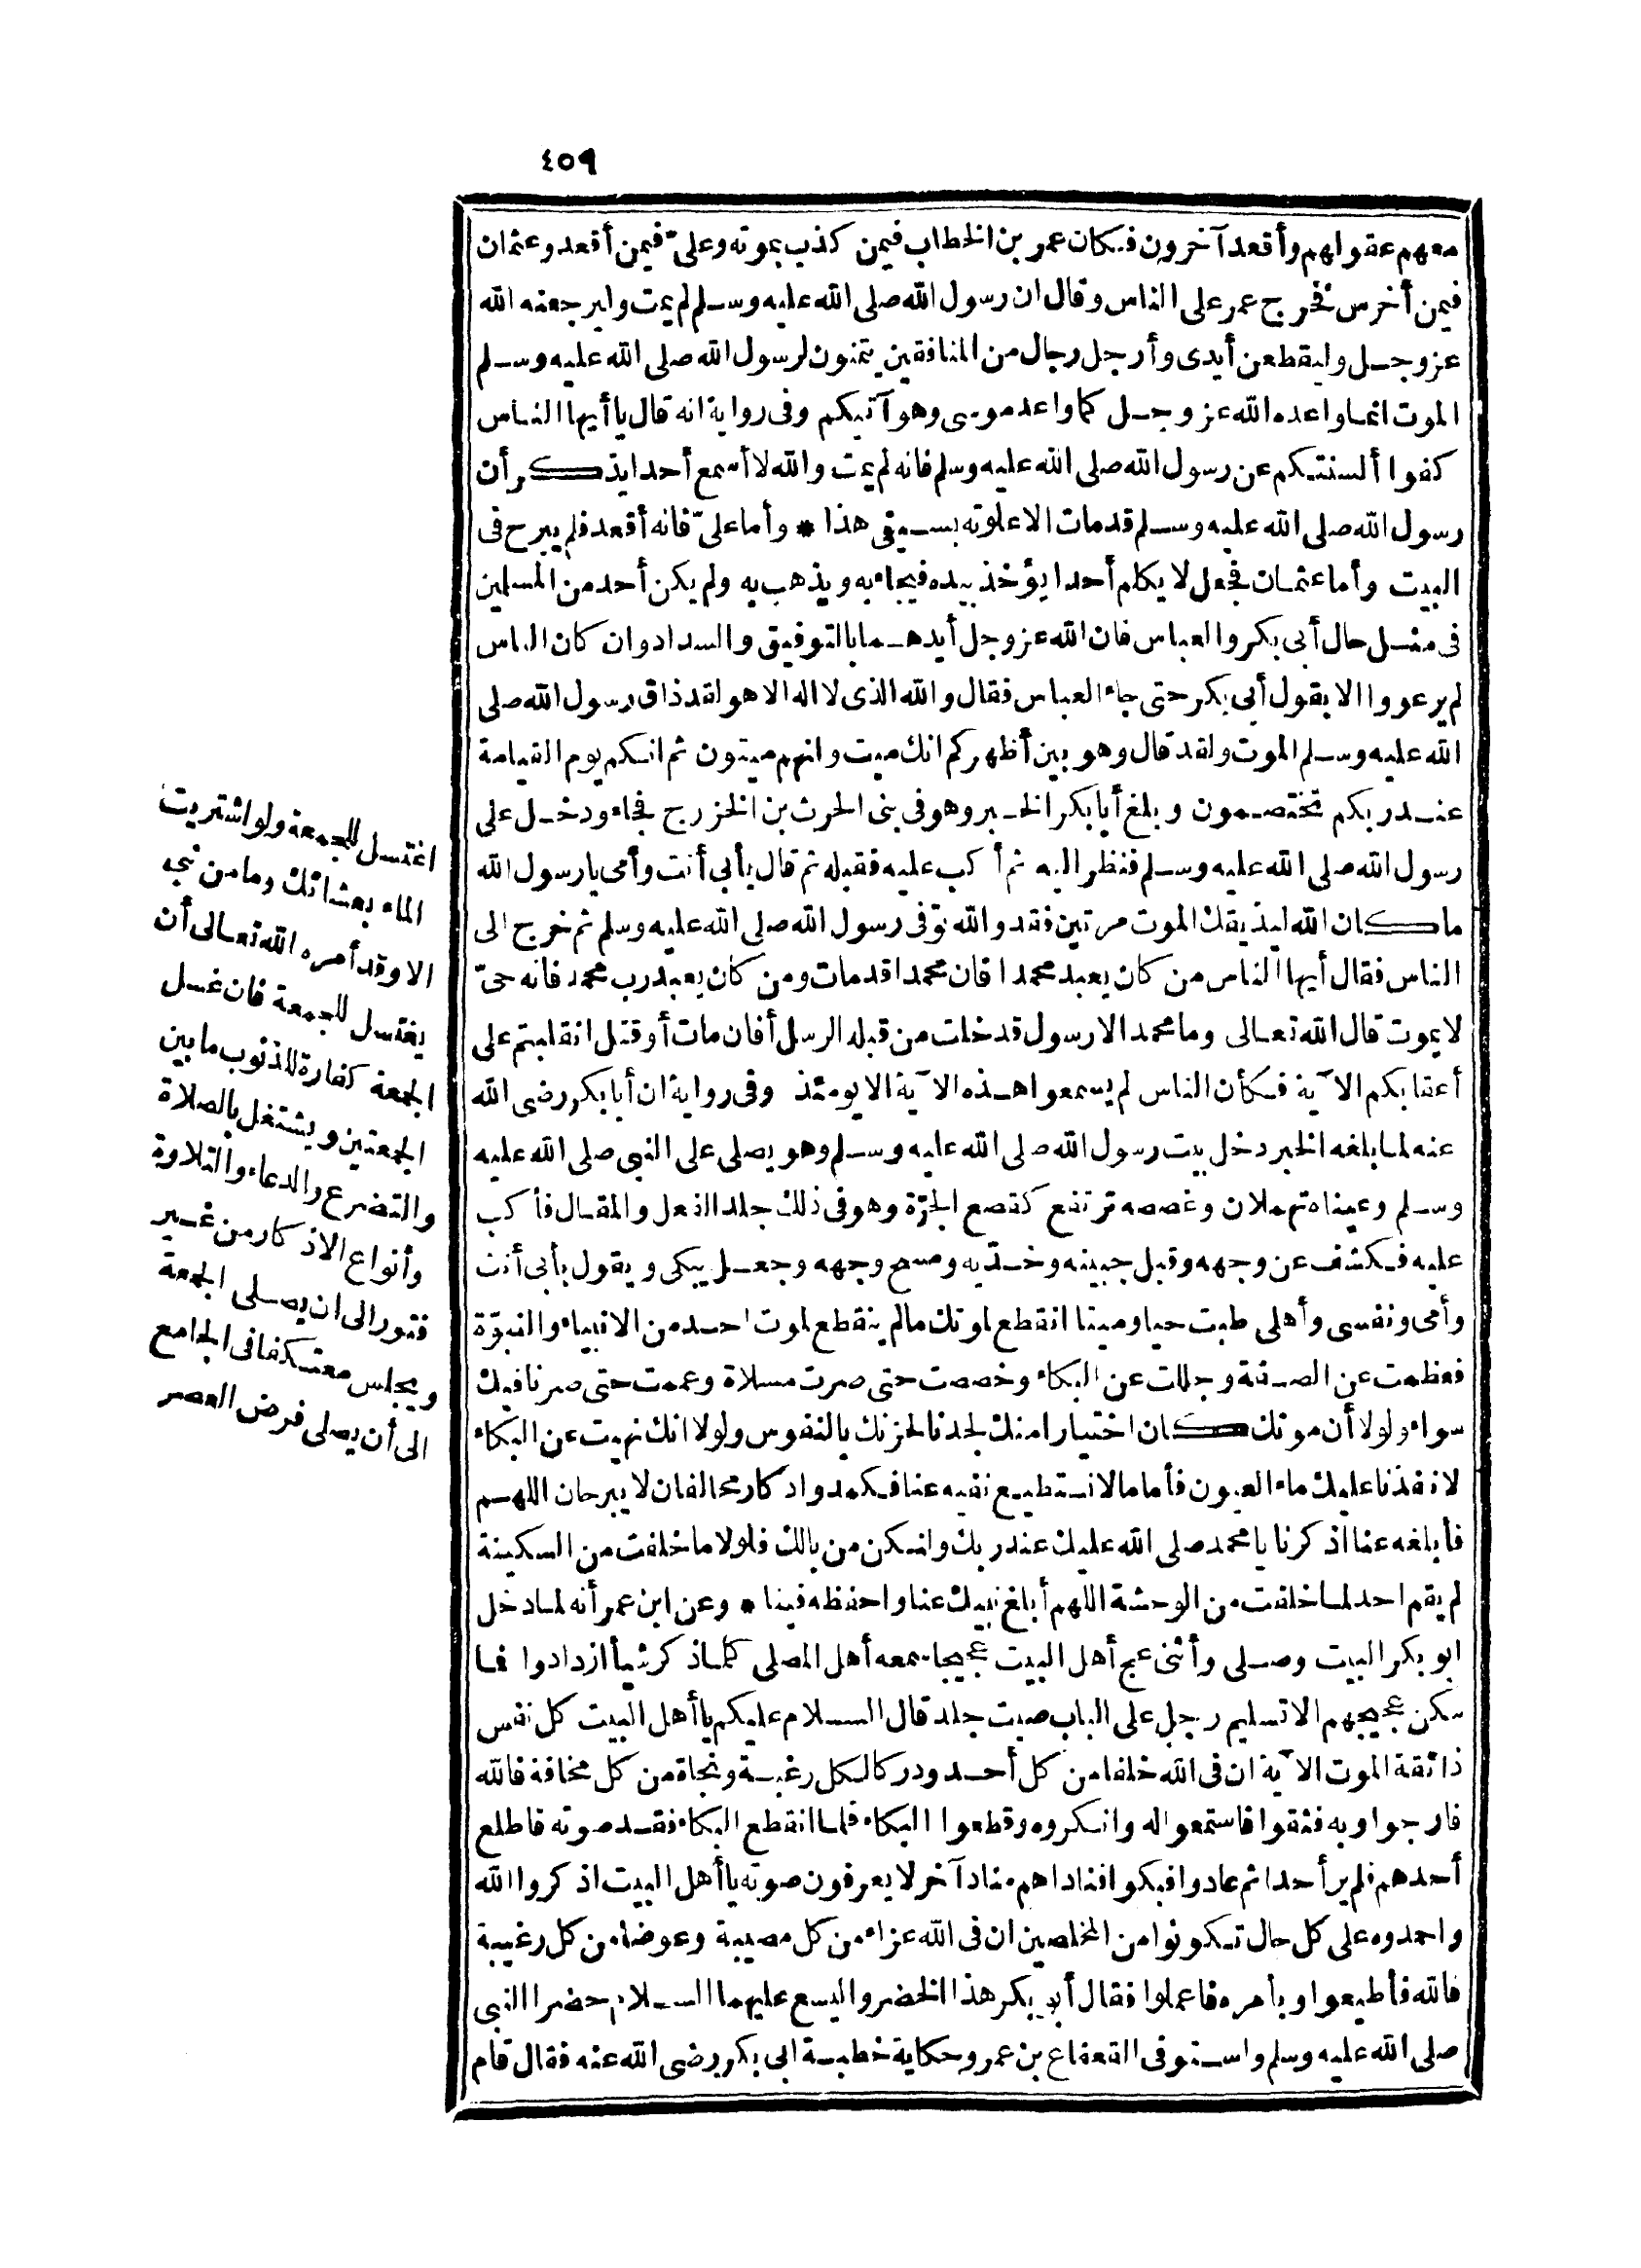 ٤٥٩
معهم عقولهم وأقعد آخرون فكان عمر بن الخطاب فيمن كذب بموته وعلىّ فيمن أقعد وعثمان
فيمن أخرس فخرج عمر على الناس وقال ان رسول الله صلى الله عليه وسلم لم يمت وليرجعنه الله
عز وجل وليقطعن أيدى وأرجل رجال من المنافقين يتمنون لرسول الله صلى الله عليه وسلم
الموت انما واعده الله عز وجل كما واعد موسى وهو آتيكم وفى رواية انه قال يا أيها الناس
كفوا ألسنتكم عن رسول الله صلى الله عليه وسلم فانه لم يمت والله لا أسمع أحدا يذكر أن
رسول الله صلى الله عليه وسلم قد مات الا علوته بسيفى هذا * وأما علىّ فانه أقعد فلم يبرح فى
البيت وأما عثمان فجعل لا يكلم أحدا يؤخذ بيده فيجاء به ويذهب به ولم يكن أحد من المسلمين
فى مثل حال أبى بكر والعباس فان الله عز وجل أيدهما بالتوفيق والسداد وان كان الناس
لم يرعووا الا بقول أبى بكر حتى جاء العباس فقال والله الذى لا اله الا هو لقد ذاق رسول الله صلى
الله عليه وسلم الموت ولقد قال وهو بين أظهركم انك ميت وانهم ميتون ثم انكم يوم القيامة
عند ربكم تختصمون وبلغ أبا بكر الخبر وهو فى بنى الحرث بن الخزرج فجاء ودخل على
رسول الله صلى الله عليه وسلم فنظر اليه ثم أكب عليه فقبله ثم قال بأبى أنت وأمى يا رسول الله
ما كان الله ليذيقك الموت مرتين فقد والله توفى رسول الله صلى الله عليه وسلم ثم خرج الى
الناس فقال أيها الناس من كان يعبد محمدا فان محمدا قد مات ومن كان يعبد رب محمد فانه حىّ
لا يموت قال الله تعالى وما محمد الا رسول قد خلت من قبله الرسل أفان مات أو قتل انقلبتم على
أعقابكم الآية فكأن الناس لم يسمعوا هذه الآية الا يومئذ وفى رواية ان أبا بكر رضى الله
عنه لما بلغه الخبر دخل بيت رسول الله صلى الله عليه وسلم وهو يصلى على النبى صلى الله عليه
وسلم وعيناه تهملان وغصصه ترتفع كقصع الجرّة وهو فى ذلك جلد الفعل والمقال فأكب
عليه فكشف عن وجهه وقبل جبينه وخدّيه ومسح وجهه وجعل يبكى ويقول بأبى أنت
وأمى ونفسى وأهلى طبت حيا وميتا انقطع لموتك ما لم ينقطع لموت احد من الانبياء والنبوّة
فعظمت عن الصفة وجللت عن البكاء وخصصت حتى صرت مسلاة وعممت حتى صرنا فيك
سواء ولولا أن موتك كان اختيارا منك لجدنا لحزنك بالنفوس ولولا انك نهيت عن البكاء
لانفذنا عليك ماء العيون فأما ما لا نستطيع نفيه عنا فكمد وادكار محالفان لا يبرحان اللهم
فأبلغه عنا اذكرنا يا محمد صلى الله عليك عند ربك ولنكن من بالك فلولا ما خلفت من السكينة
لم يقم احد لما خلفت من الوحشة اللهم أبلغ نبيك عنا واحفظه فينا * وعن ابن عمر أنه لما دخل
ابو بكر البيت وصلى وأثنى عج أهل البيت عجيجا سمعه أهل المصلى كلما ذكر شيأ ازدادوا فما
سكن عجيجهم الا تسليم رجل على الباب صيت جلد قال السلام عليكم يا أهل البيت كل نفس
ذائقة الموت الآية ان فى الله خلفا من كل أحد ودركا لكل رغبة ونجاة من كل مخافة فالله
فارجوا وبه فثقوا فاستمعوا له وانكروه وقطعوا البكاء فلما انقطع البكاء فقد صوته فاطلع
أحدهم فلم ير أحدا ثم عادوا فبكوا فناداهم مناد آخر لا يعرفون صوته يا أهل البيت اذكروا الله
واحمدوه على كل حال تكونوا من المخلصين ان فى الله عزاء من كل مصيبة وعوضا من كل رغيبة
فالله فأطيعوا وبأمره فاعملوا فقال أبو بكر هذا الخضر واليسع عليهما السلام حضرا النبى
صلى الله عليه وسلم واستوفى القعقاع بن عمرو حكاية خطبة ابى بكر رضى الله عنه فقال قام
اغتسل للجمعة ولو اشتريت
الماء بعشائك وما من نبى
الا وقد أمره الله تعالى أن
يغتسل للجمعة فان غسل
الجمعة كفارة للذنوب ما بين
الجمعتين ويشتغل بالصلاة
والتضرع والدعاء والتلاوة
وأنواع الاذكار من غير
فتور الى ان يصلى الجمعة
ويجلس معتكفا فى الجامع
الى أن يصلى فرض العصر